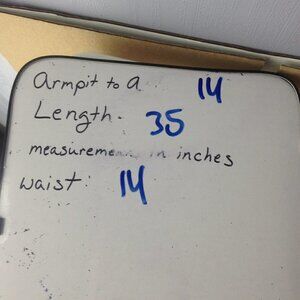 Armpit to a 14
Length. 35
measurement in inches
waist: 14